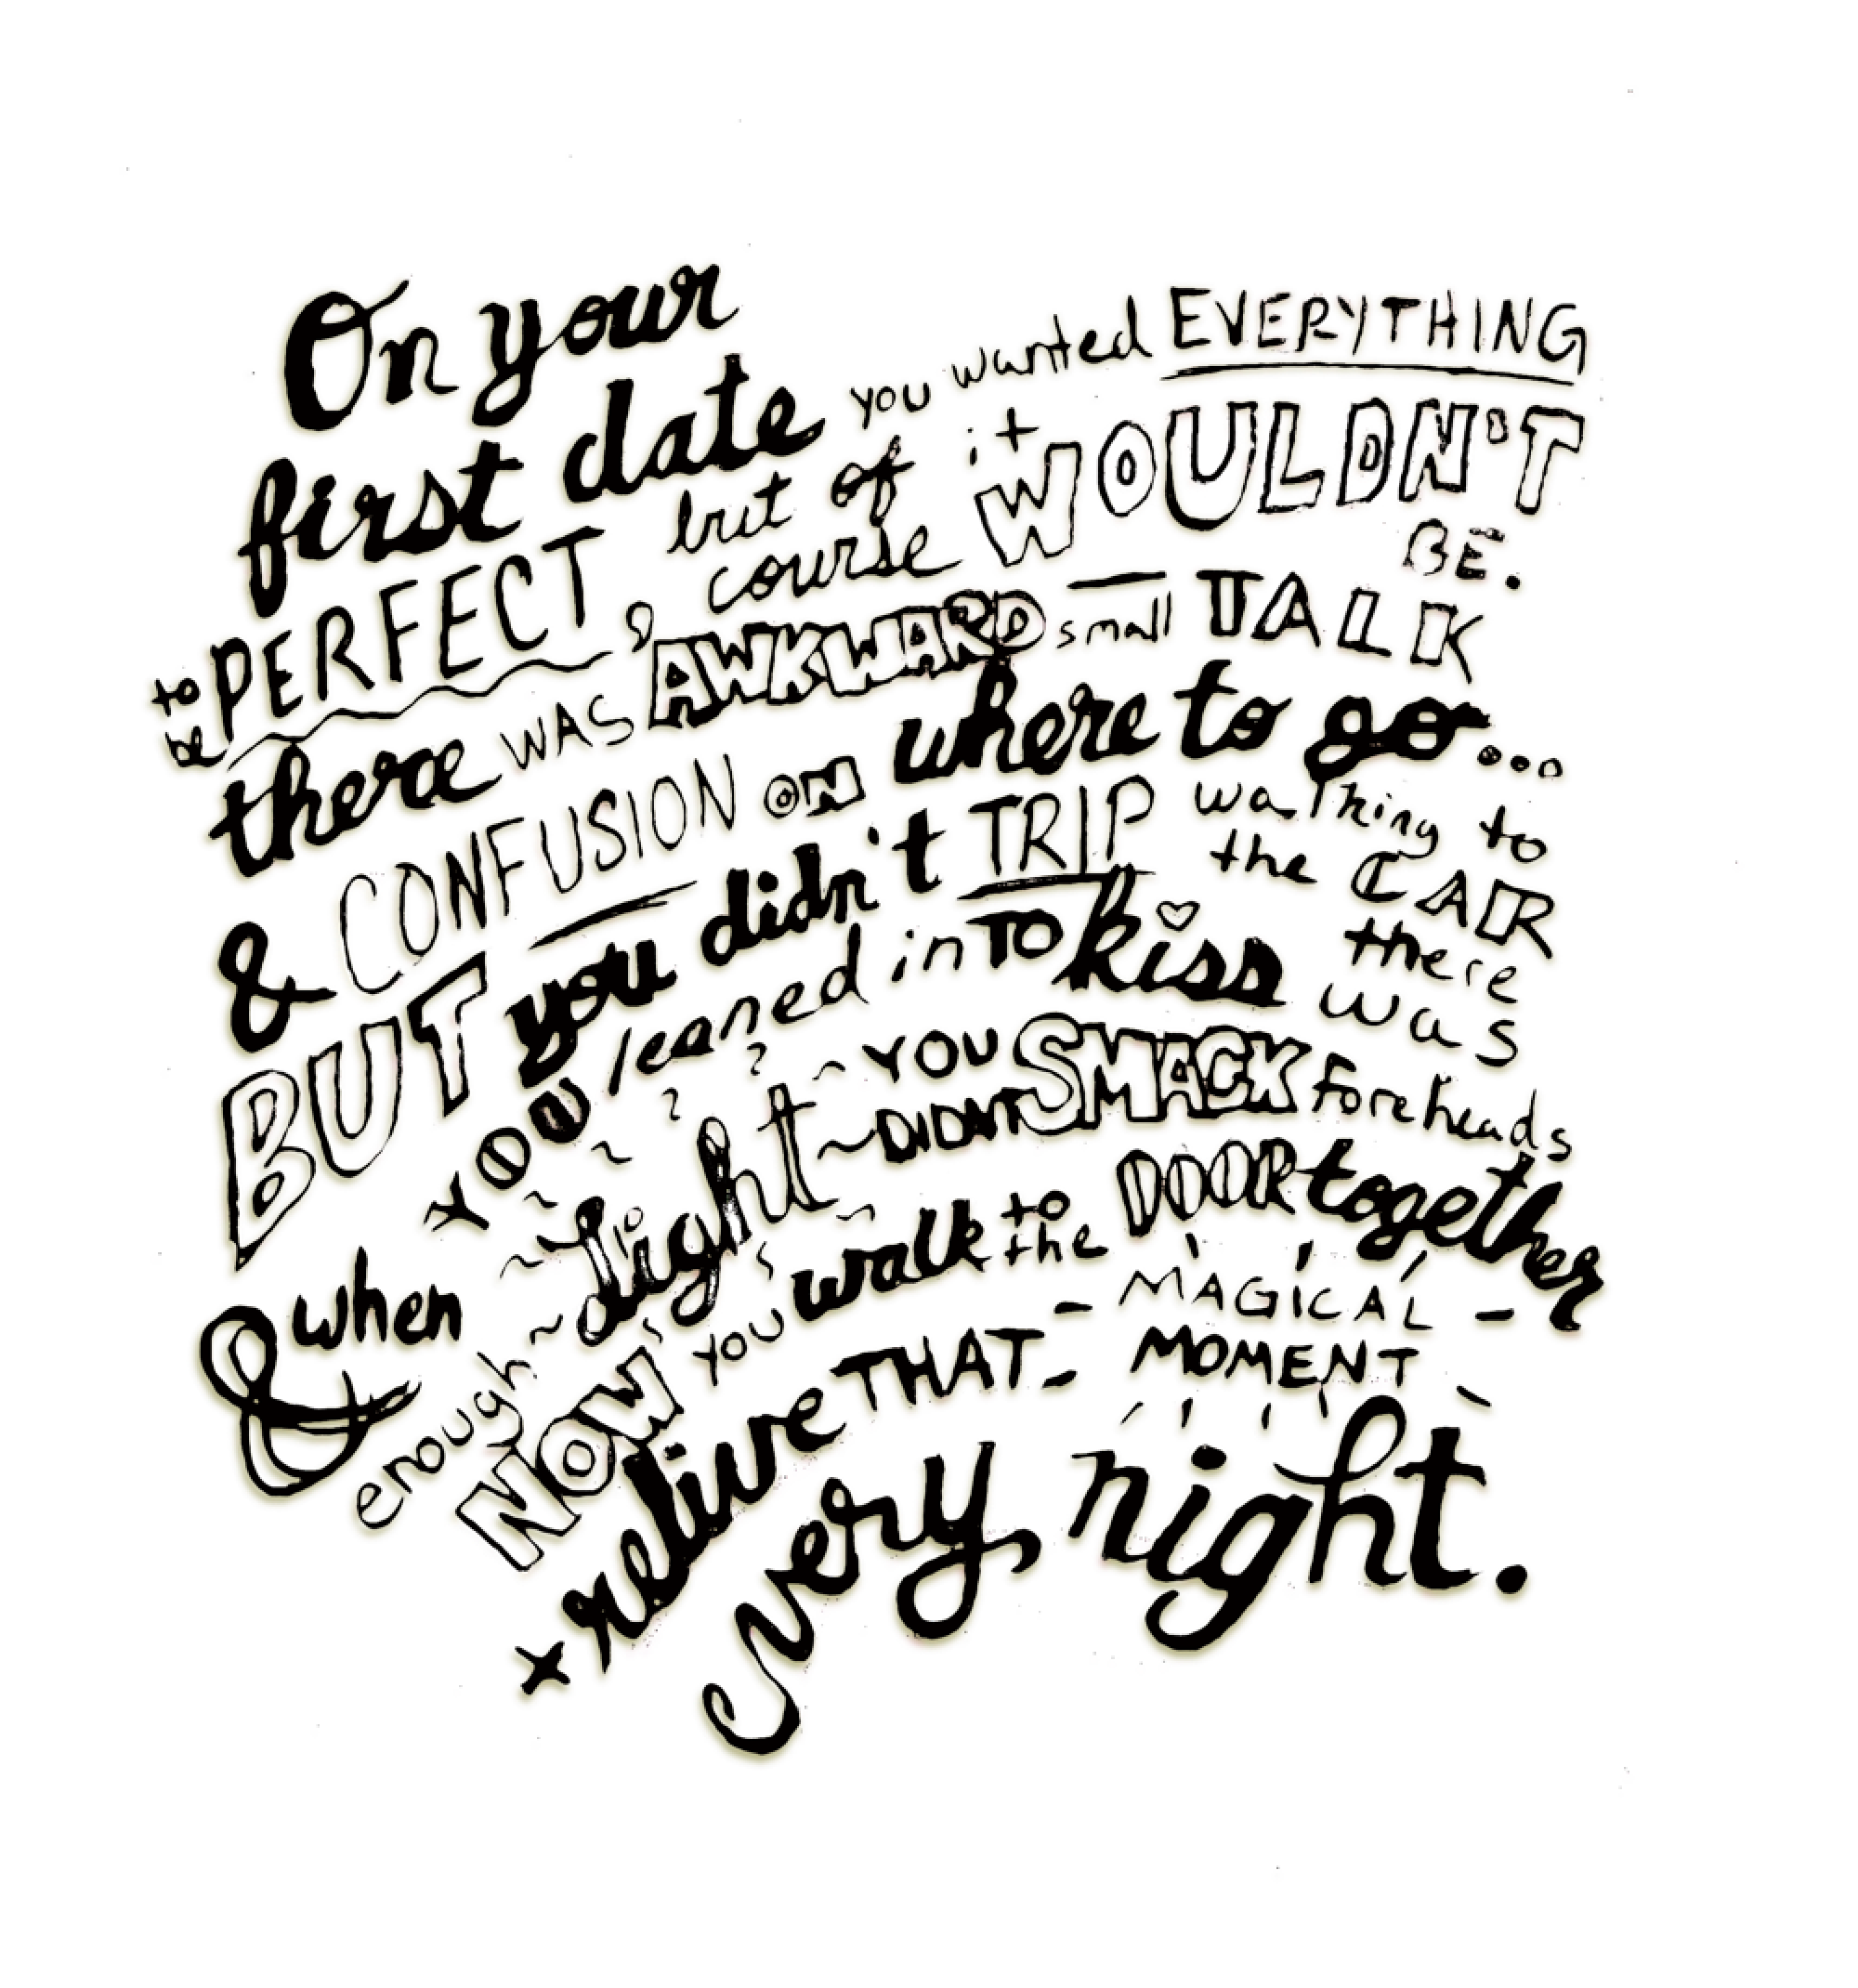 On your
first date you wanted EVERYTHING
to be PERFECT, but of course it WOULDN'T BE.
there WAS AWKWARD small TALK
& CONFUSION ON where to go...
BUT you didn't TRIP walking to the CAR
& when YOU leaned in TO kiss there was
enough light YOU DIDN'T SMACK foreheads
NOW YOU walk to the DOOR together
+ relive THAT MAGICAL MOMENT
every night.